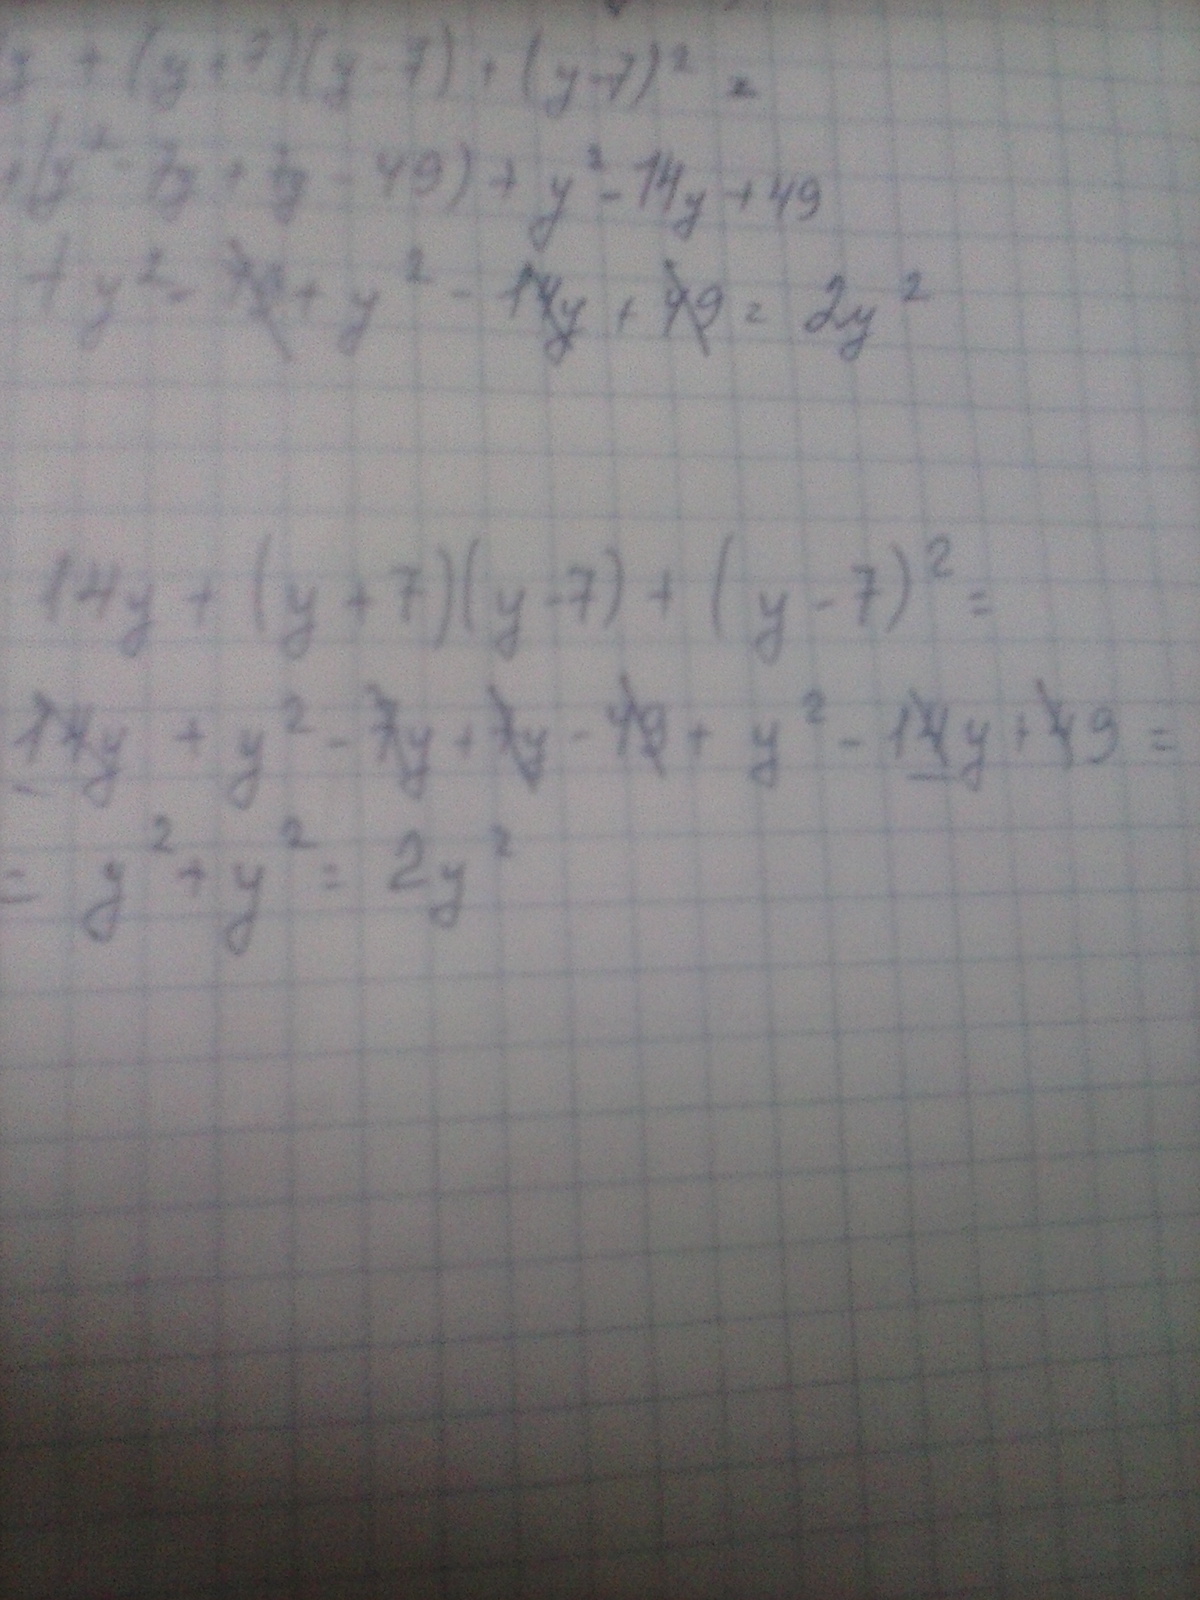 y + (y+7)(y-7) + (y-7)² =
+(y² - 7y + 7y - 49) + y² - 14y + 49
+ y² - 49 + y² - 14y + 49 = 2y²
14y + (y+7)(y-7) + (y-7)² =
14y + y² - 7y + 7y - 49 + y² - 14y + 49 =
= y² + y² = 2y²